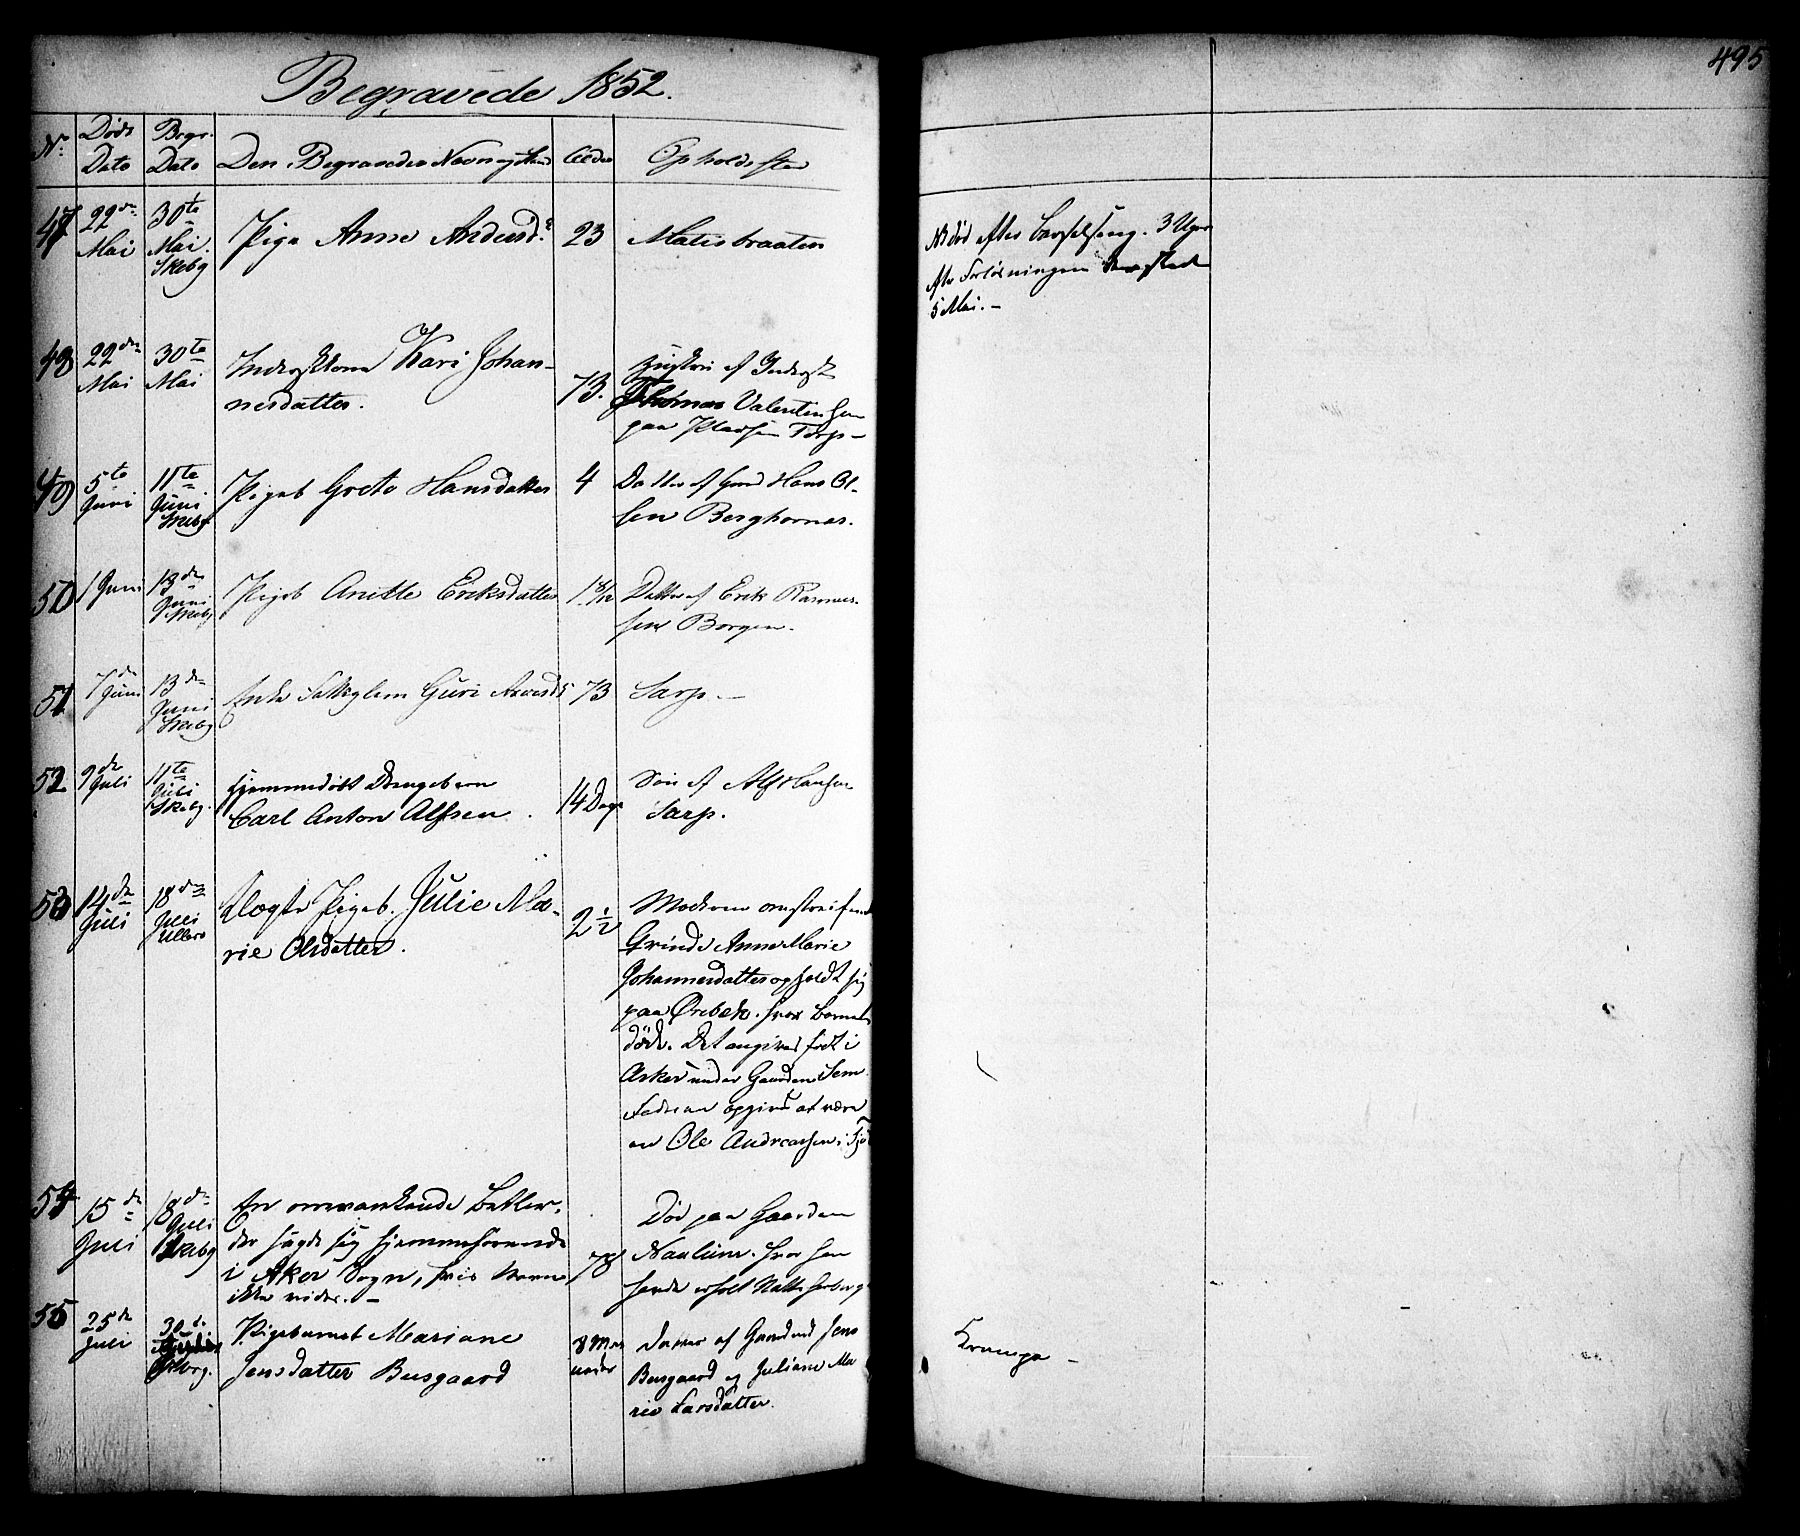 495
Begravede 1852.
N.
Døds Dato
Begr. Dato
Den Begravedes Navn og Stand
Alder
Opholdssted
47
22de Mai
30te Mai. Skebg
Pige Anne Andersd.
23
Matesbraaten
NB død efter Barselseng. 3 Uger
efter Forløsningen
5 Mai. -
48
22de Mai
30te Mai
Inderstkone Kari Johan-
nesdatter.
73.
Hustrue af Inderst
Thomas Valentinsen
paa Torp -
49
5te Juni
11te Juni Skebg
Pigeb Grete Hansdatter
4
Datter af Gmd Hans Ol-
sen Berghornes.
50
1 Juni
13de Juni Skebg
Pigeb Anette Eriksdatter
1 8/12
Datter af Erik Rasmus-
sen Borgen.
51
7de Juni
13de Juni Skebg
Enke Fattiglem Guri
73
Sarp. -
52
9de Juli
11te Juli Skebg.
Hjemmedøbt Drengebarn
Carl Anton Alfsen.
14 Dage
Søn af Alf Hansen
Sarp.
53
14de Juli
18de Juli Ullero
Uægte Pigeb. Julie Ma-
rie Olsdatter.
2 1/2
Moderen omstreifende
Grinde Anne Marie
Johannesdatter opholdt sig
paa Ørebek. hvor Barnet
døde. Det angives født i
Asker under Gaarden Sem.
Faderen opgives at være
en Ole Andreassen i
54
15de Juli
18de Juli Skebg
En omvankende Betler,
der sagde sig hjemmehørende
i Aker Sogn, hvis Navn
ikke vides. -
78
Død paa Gaarden
Navlum. hvor han
havde erholdt Natteherberg
55
25de Juli
30te Skbrg.
Pigebarnet Mariane
Jensdatter Busgaard
8 Maa
neder
Datter af Gaardmd Jens
Busgaard og Juliane Ma
rie Larsdatter.
Krampe -